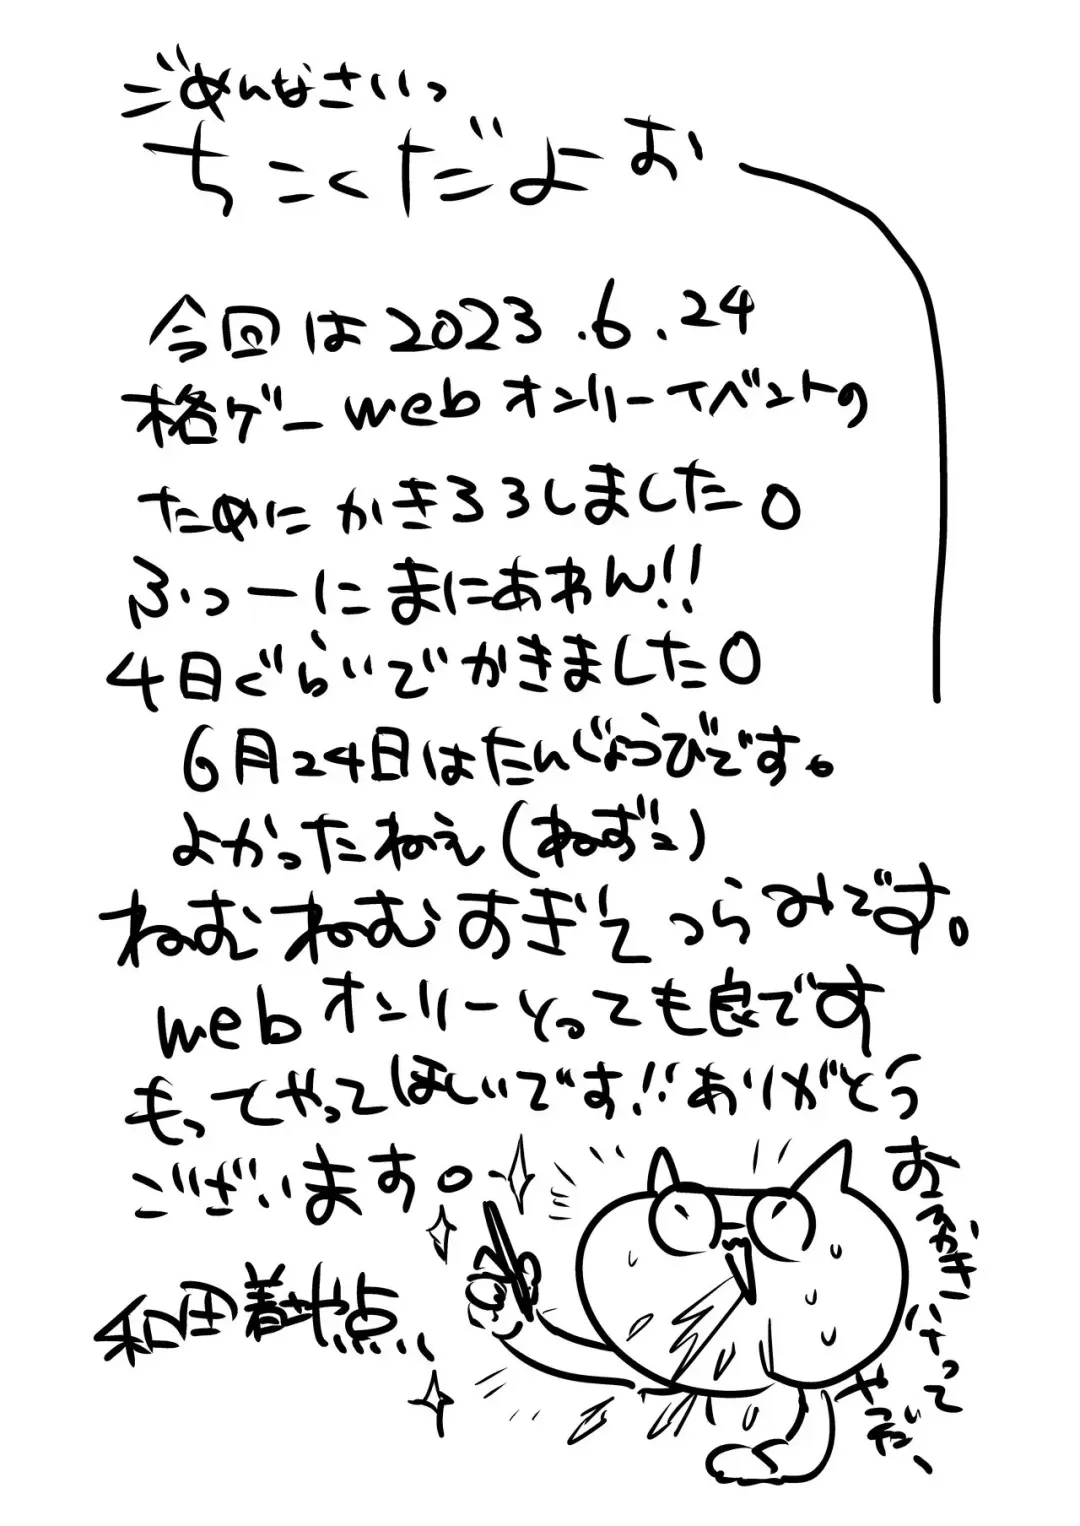 ごめんなさいっ
ちこくだよお
今回は2023.6.24
格ゲーwebオンリーイベントの
ためにかきろろしました。
ふつーにまにあわん!!
4日ぐらいでかきました。
6月24日はたんじょうびです。
よかったねぇ(ねずこ)
ねむねむすぎてつらみです。
webオンリーとっても良です
もってやってほしいです!!ありがとう
ございます。
和田着
おえかき